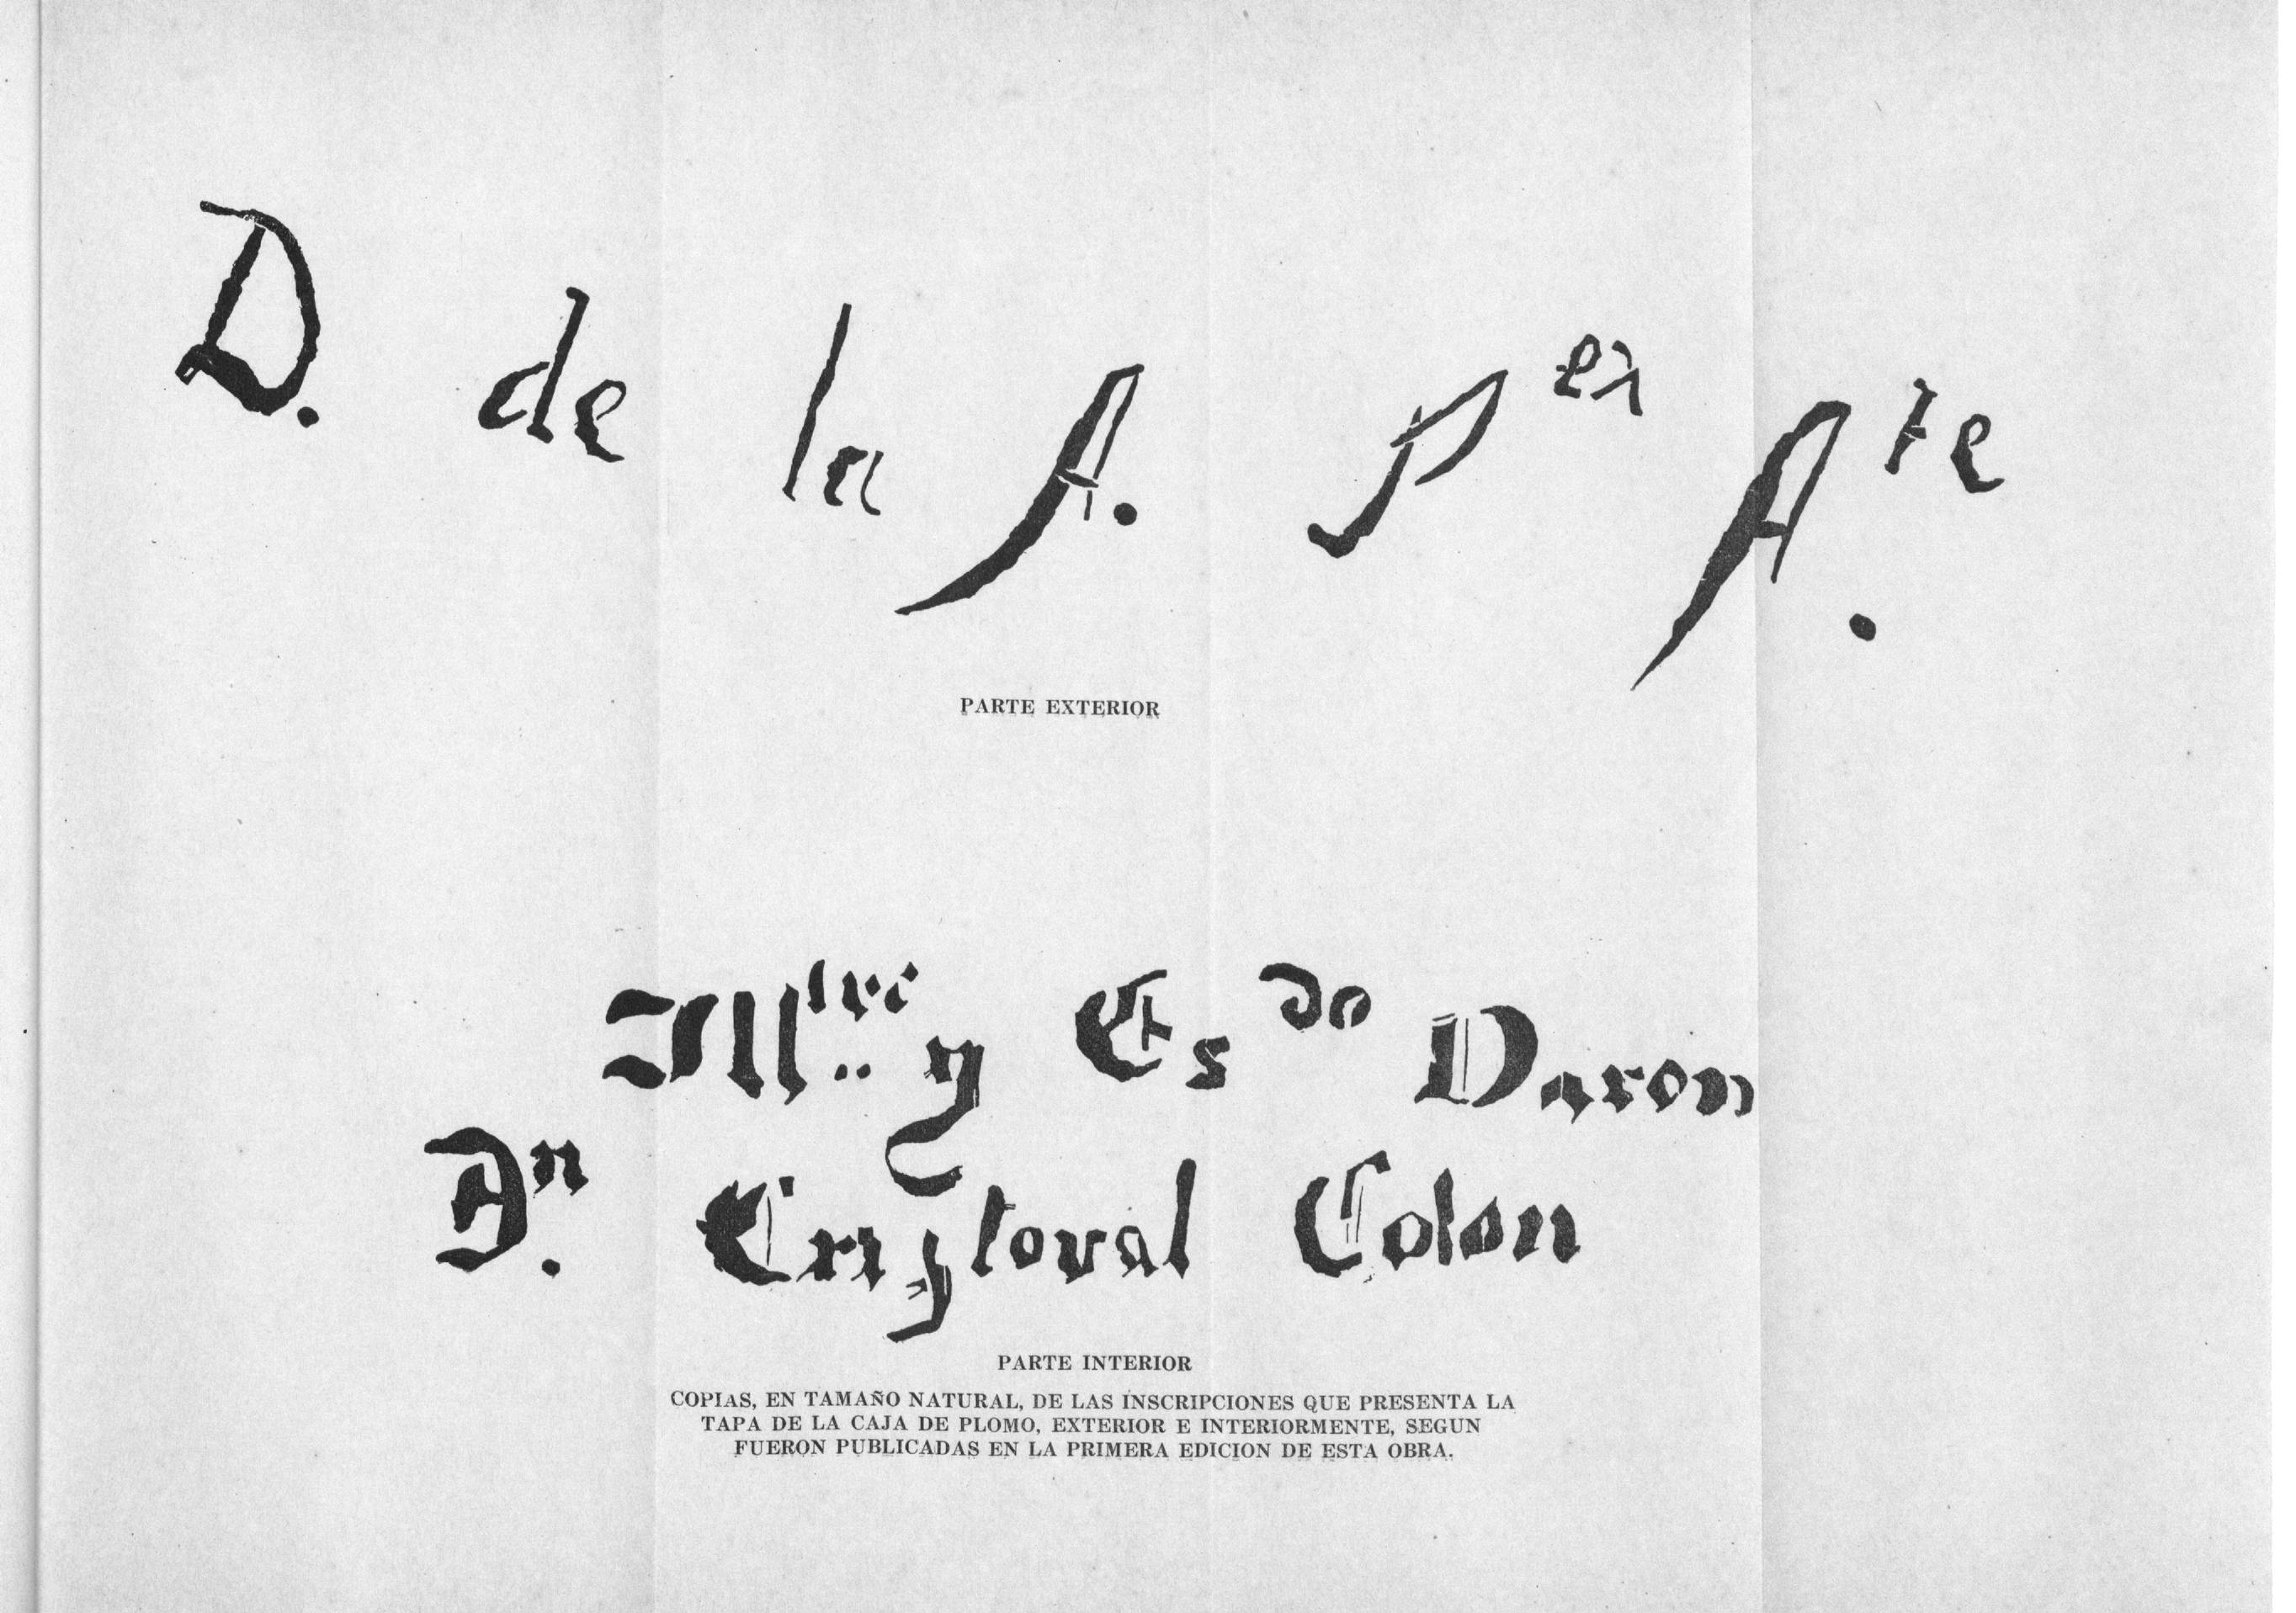 D. de la A. Per Ate.
PARTE EXTERIOR
Illtre.. y Esdo Varon
Dn. Cristoval Colon
PARTE INTERIOR
COPIAS, EN TAMAÑO NATURAL, DE LAS INSCRIPCIONES QUE PRESENTA LA
TAPA DE LA CAJA DE PLOMO, EXTERIOR E INTERIORMENTE, SEGUN
FUERON PUBLICADAS EN LA PRIMERA EDICION DE ESTA OBRA.